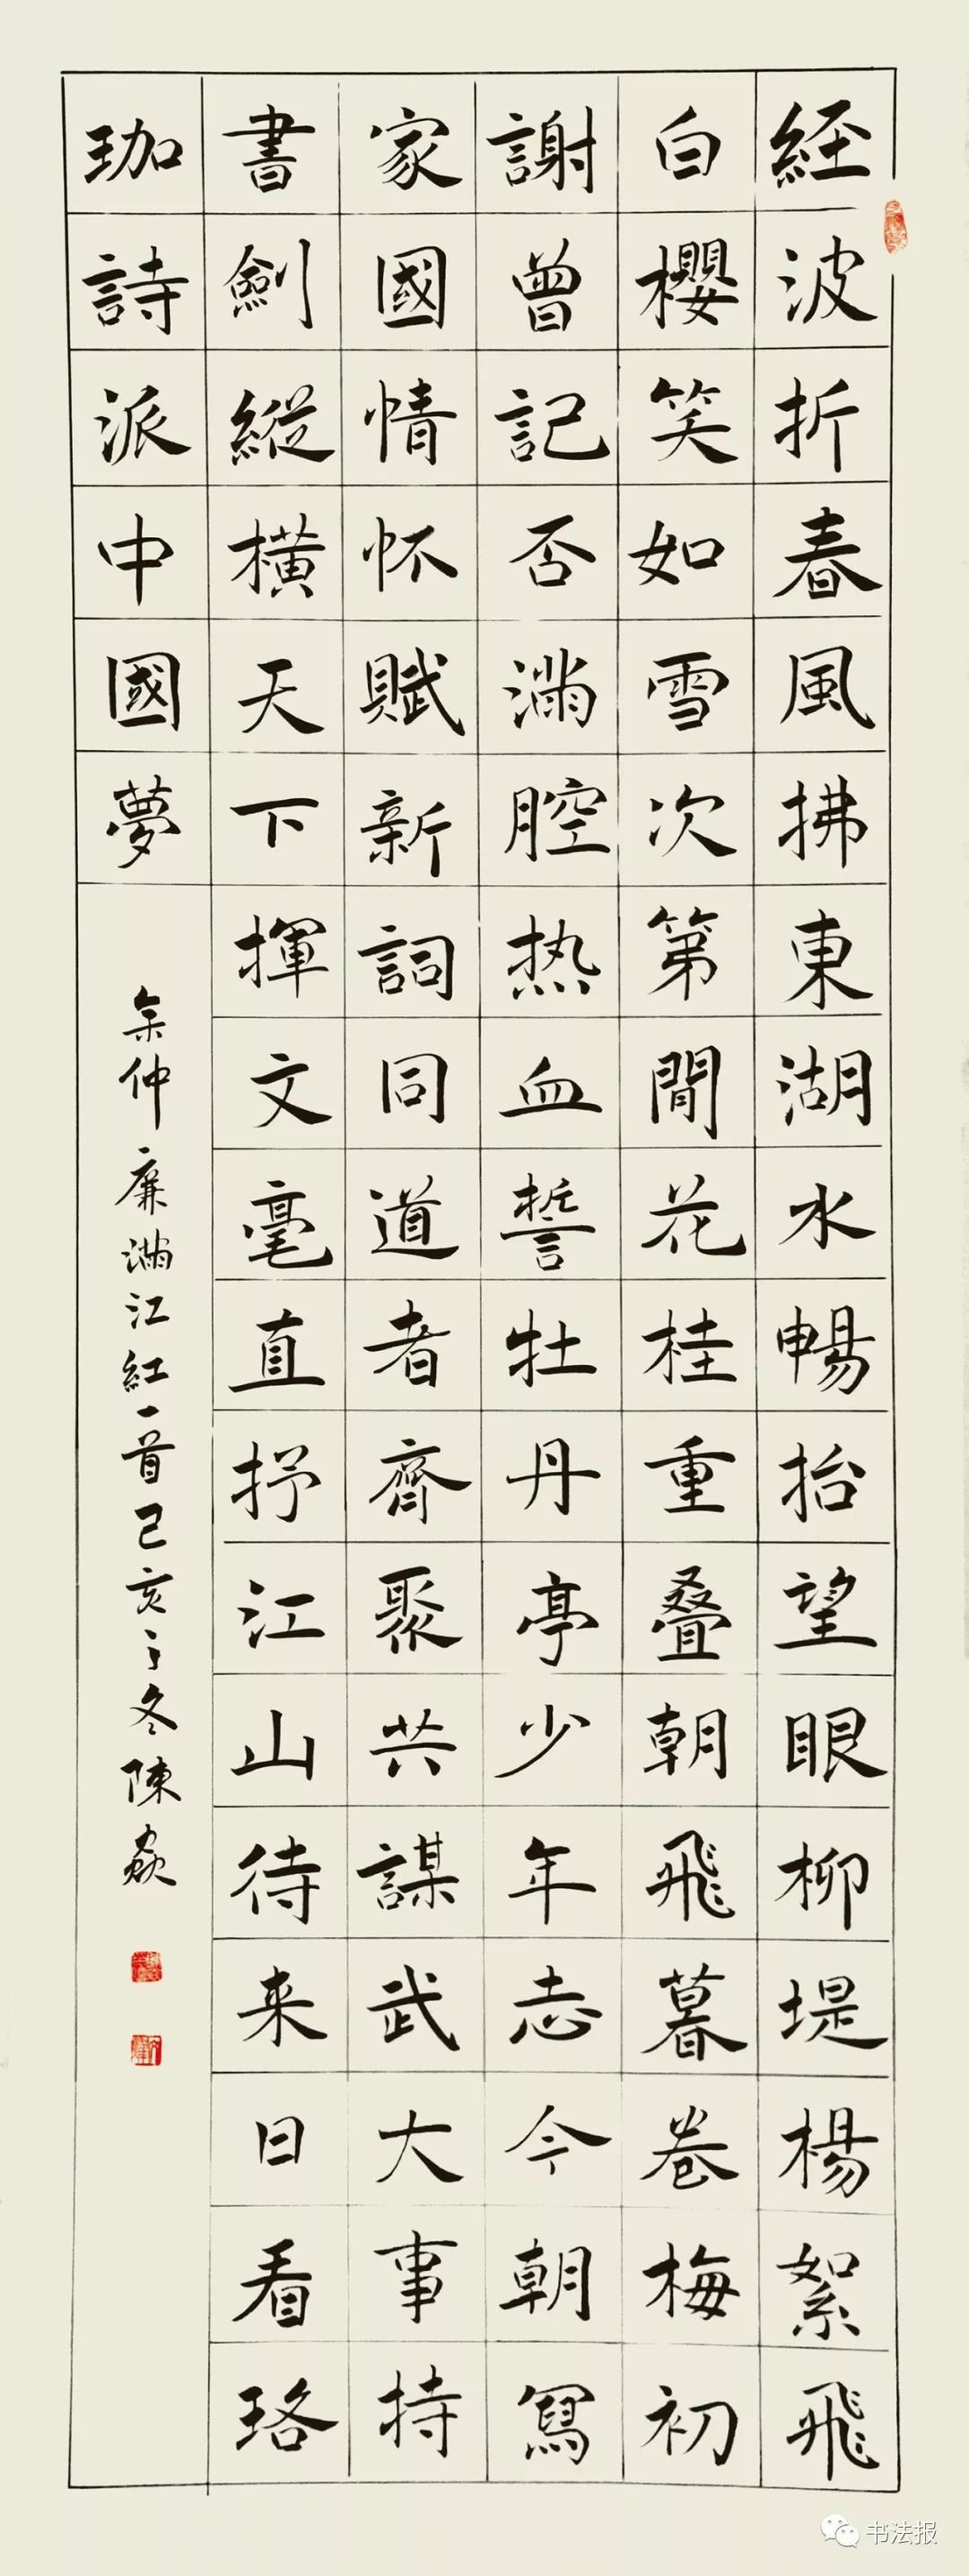 経波折春風拂東湖水暢抬望眼柳堤楊絮飛
白櫻笑如雪次第間花桂重叠朝飛暮卷梅初
謝曾記否滿腔热血誓牡丹亭少年志今朝寫
家國情怀賦新詞同道者齊聚共謀武大事持
書劍縱橫天下揮文毫直抒江山待来日看珞
珈詩派中國夢
余仲廉滿江紅一首己亥之冬陳焱
书法报